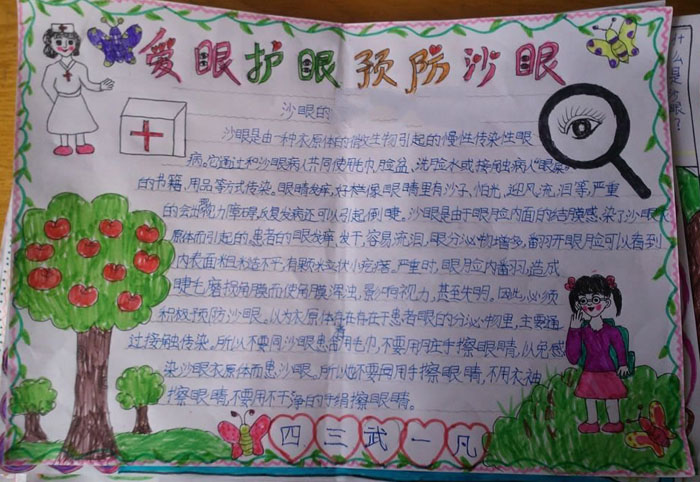 爱眼护眼预防沙眼
沙眼的
沙眼是由一种衣原体的微生物引起的慢性传染性眼
病。它通过和沙眼病人共同使用毛巾、脸盆、洗脸水或接触病人“眼屎”
的书籍,用品等方式传染。眼睛发痒,好样像眼睛里有沙子、怕光,迎风流泪等,严重
的会出现视力障碍,反复发病还可以引起倒睫。沙眼是由于眼睑内面的结膜感染了沙眼衣
原体而引起的,患者的眼发痒,发干,容易流泪,眼分泌物增多,翻开眼睑可以看到
内表面粗糙不平,有颗粒状小疙瘩。严重时,眼睑内翻,造成
睫毛磨拐角膜而使角膜浑浊,影响视力,甚至失明。因此,必须
积极预防沙眼。以为衣原体存在于患者眼的分泌物里,主要通
过接触传染。所以不要同沙眼患者用毛巾,不要用脏手擦眼睛,以免感
染沙眼衣原体而患沙眼。所以不要用手擦眼睛,不用衣袖
擦眼睛,不要用不干净的手绢擦眼睛。
四三武一凡
什么是沙眼?